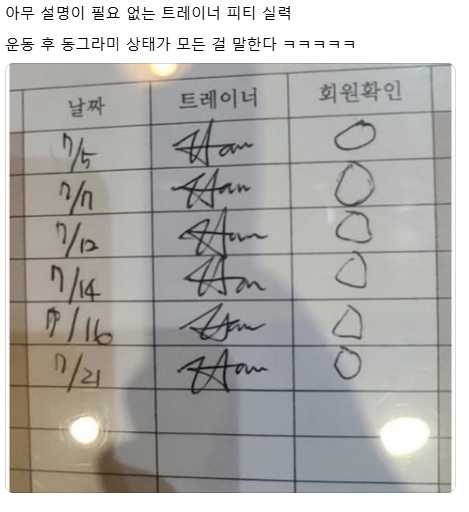 아무 설명이 필요 없는 트레이너 피티 실력
운동 후 동그라미 상태가 모든 걸 말한다 ㅋㅋㅋㅋㅋ
날짜 트레이너 회원확인
7/5 Han
7/7 Han
7/12 Han
7/14 Han
7/16 Han
7/21 Han